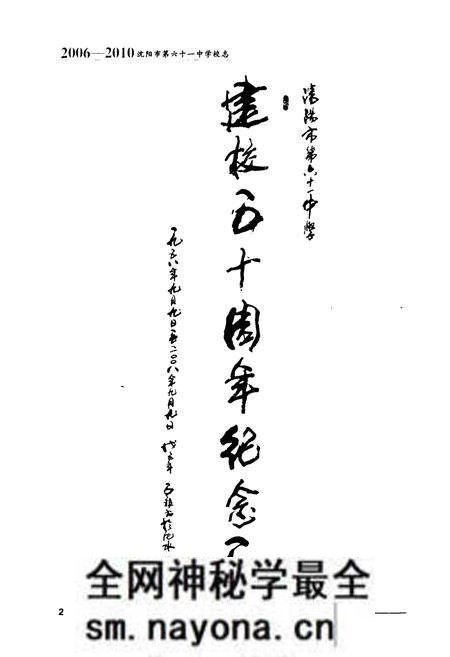 2006—2010沈阳市第六十一中学校志
瀋陽市第六十一中學
建校五十周年纪念
一九五八年九月九日至二〇〇八年九月九日 戊子年 书於沈水
2
全网神秘学最全
sm.nayona.cn